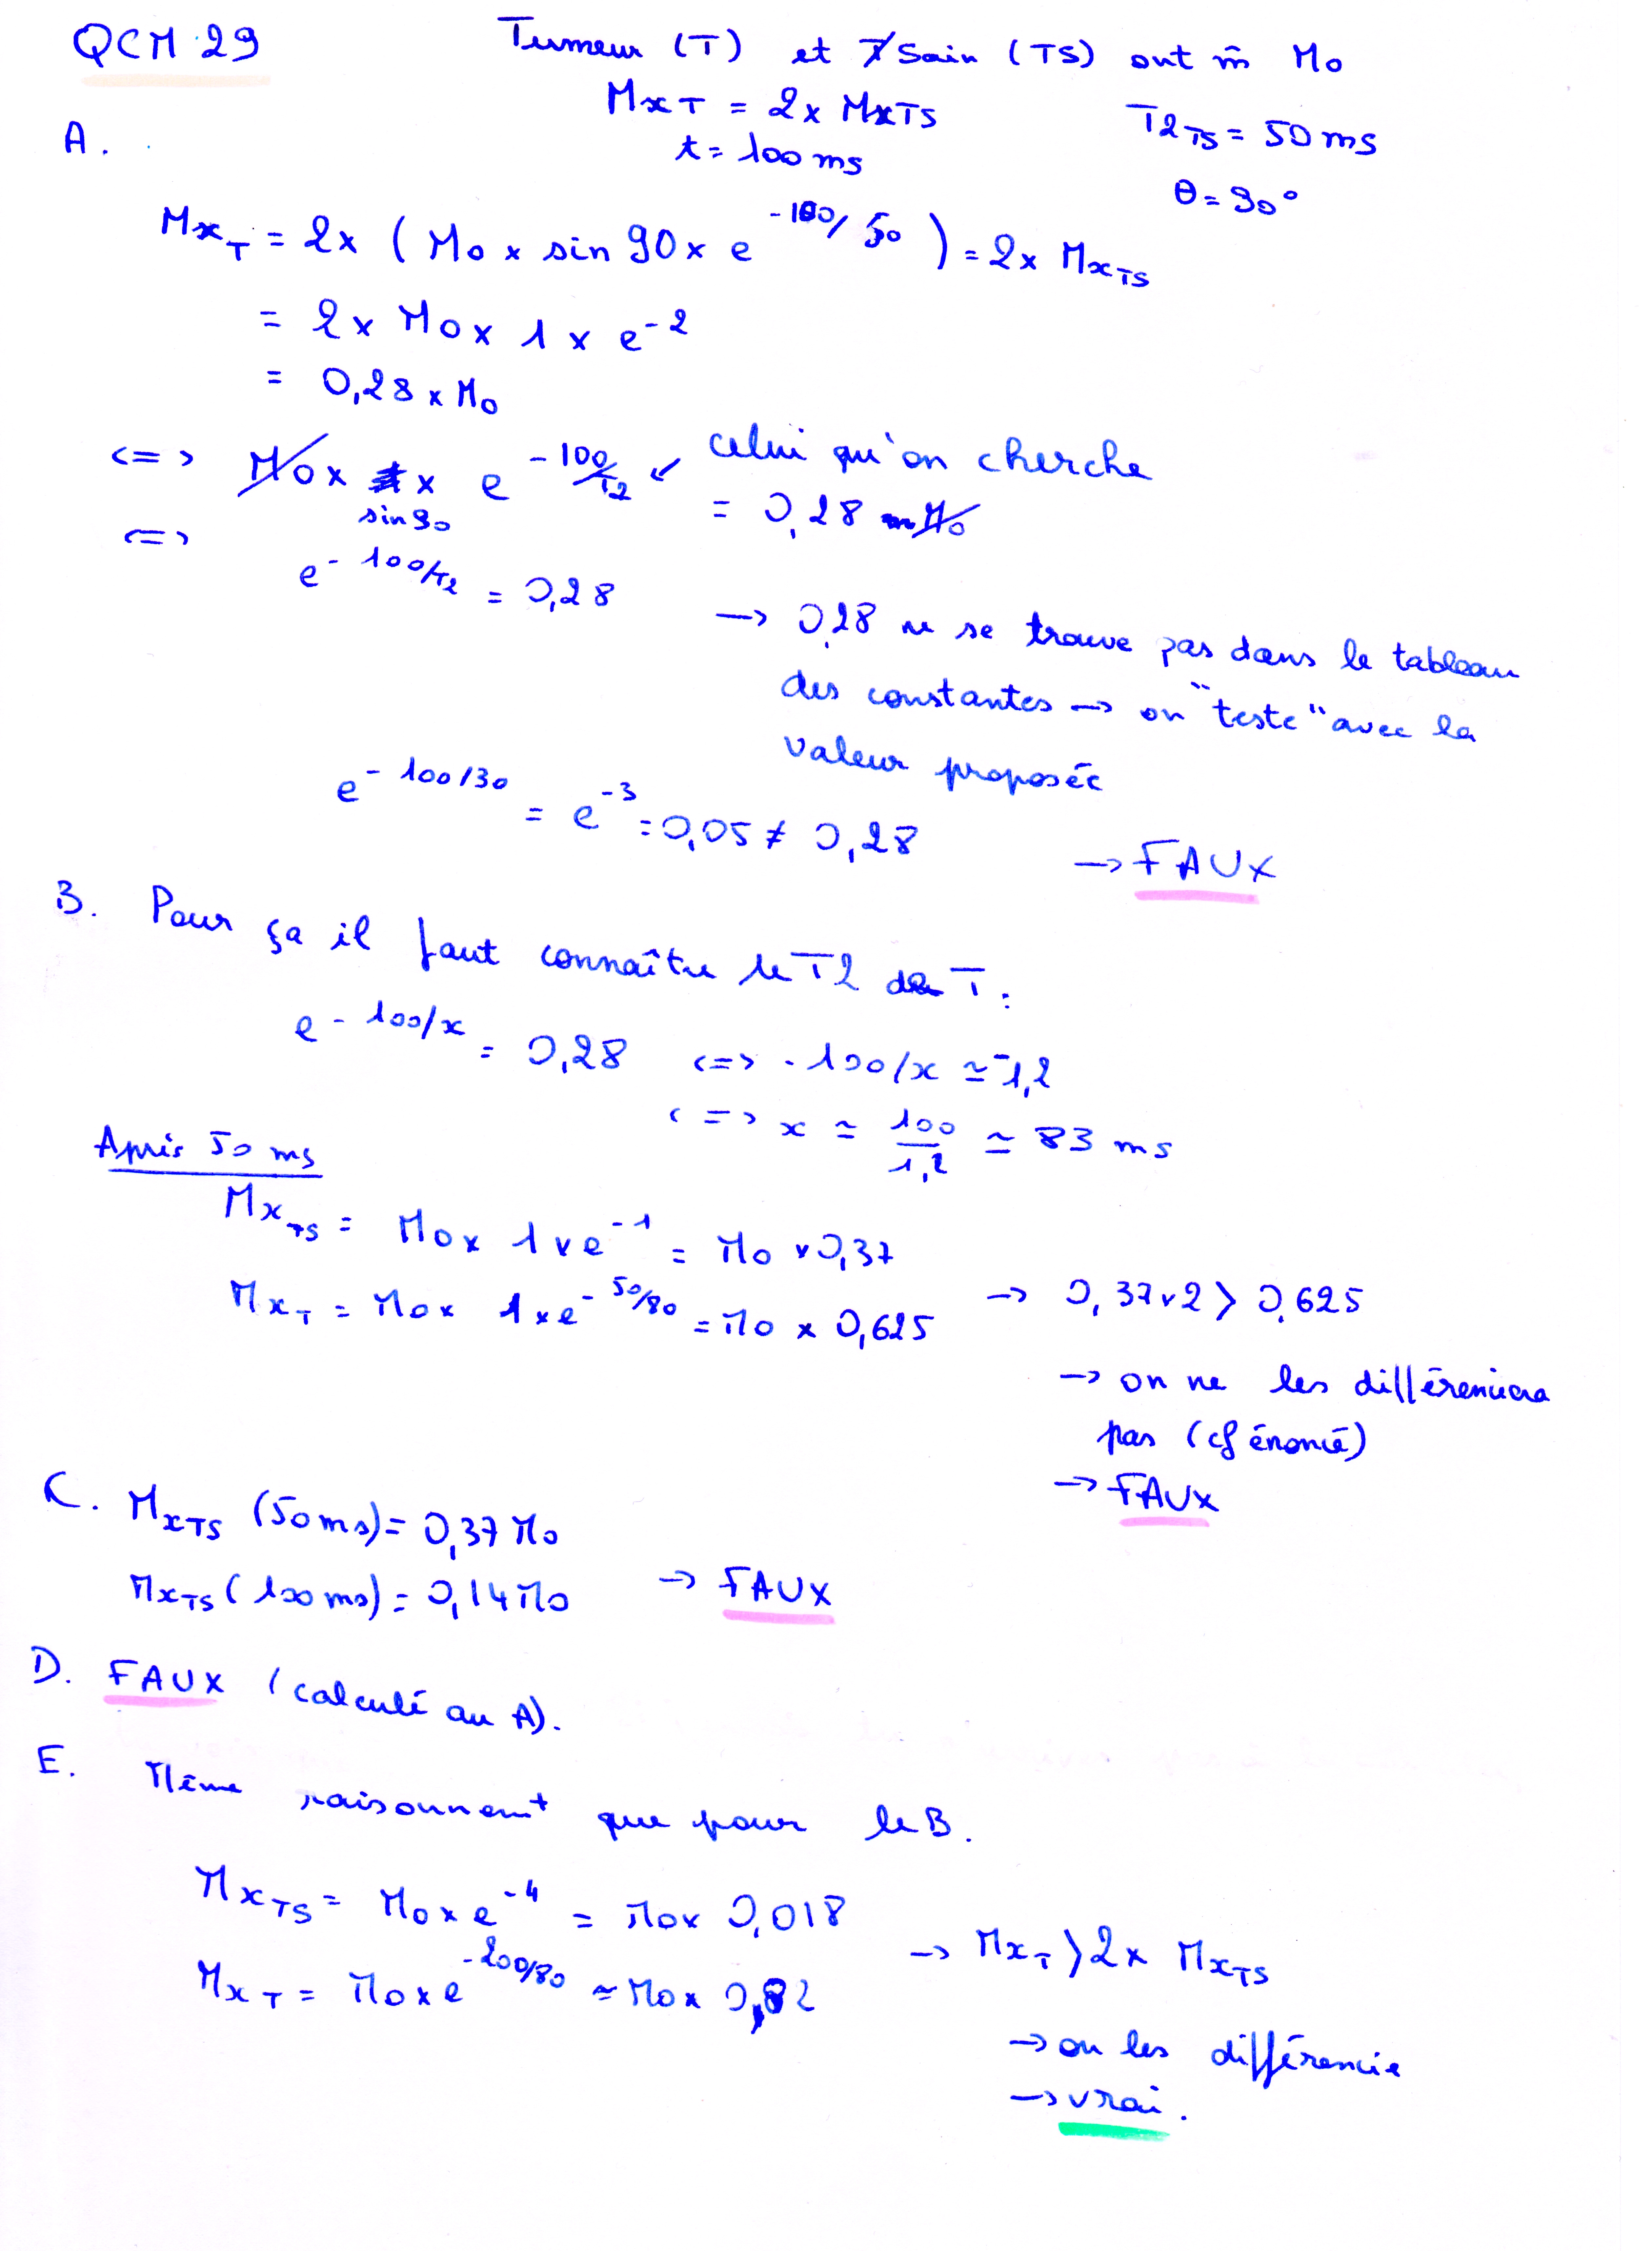 QCM 29
Tumeur (T) et T Sain (TS) ont m̂ M0
MxT = 2x MxTS
T2TS = 50 ms
A.
t = 100 ms
θ = 90°
MxT = 2x (M0 x sin 90 x e -100/50) = 2x MxTS
= 2x M0 x 1 x e-2
= 0,28 x M0
<=> M0 x x e -100/T2 ↙ celui qu'on cherche
sin 90 = 0,28 M0
<=>
e- 100/T2 = 0,28 → 0,28 ne se trouve pas dans le tableau
des constantes → on "teste" avec la
valeur proposée
e- 100/30 = e-3 = 0,05 ≠ 0,28 → FAUX
B. Pour ça il faut connaître le T2 de T :
e- 100/x = 0,28 <=> -100/x ≃ -1,2
<=> x ≃ 100/1,2 ≃ 83 ms
Après 50 ms
MxTS = M0 x 1 x e-1 = M0 x 0,37
MxT = M0 x 1 x e- 50/80 = M0 x 0,625 → 0,37x2 > 0,625
→ on ne les différenciera
pas (cf énoncé)
→ FAUX
C. MxTS (50 ms) = 0,37 M0
MxTS (100 ms) = 0,14 M0 → FAUX
D. FAUX (calculé au A).
E. Même raisonnemt que pour le B.
MxTS = M0 x e-4 = M0 x 0,018
MxT = M0 x e -200/80 ≃ M0 x 0,82 → MxT > 2x MxTS
→ on les différencie
→ vrai.